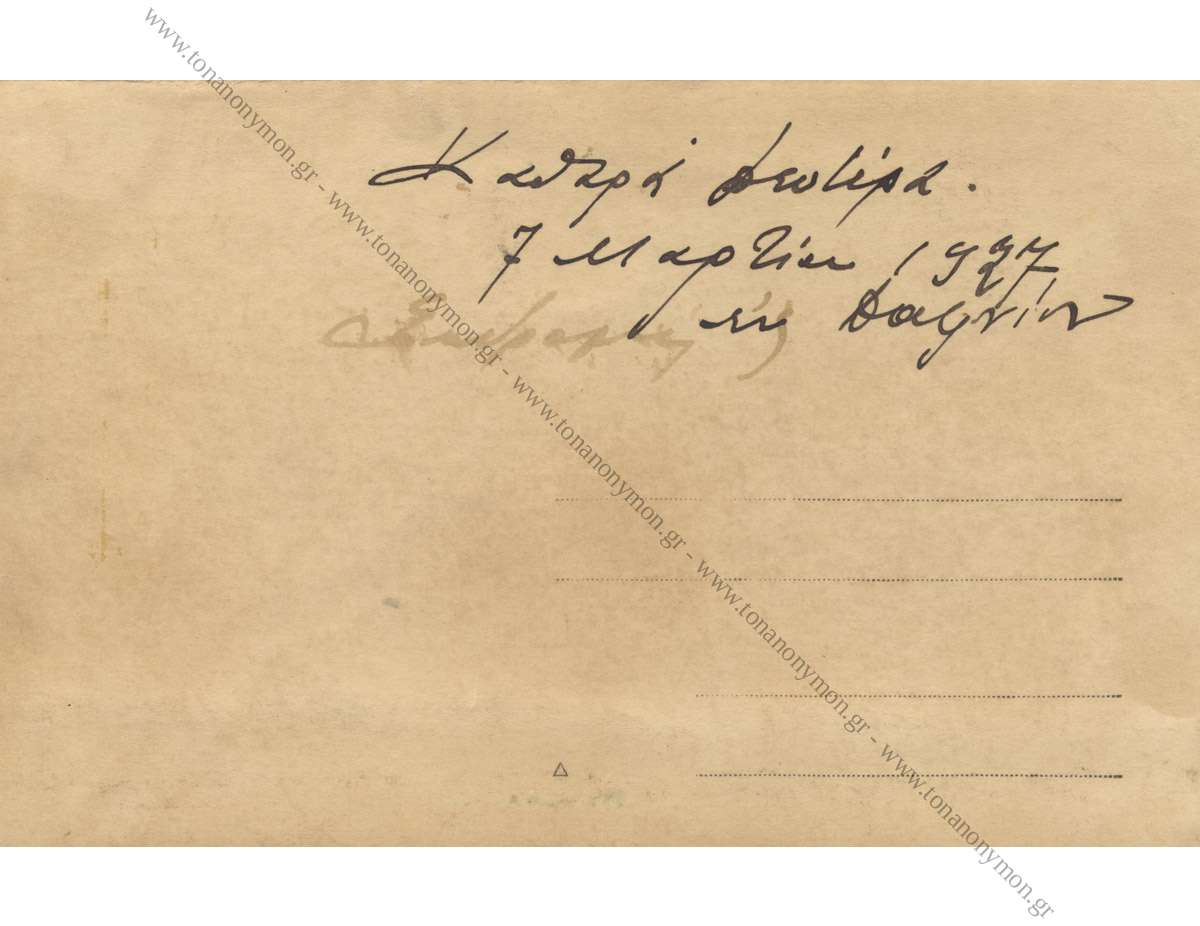 Καθαρά Δευτέρα.
7 Μαρτίου 1927
εν Δαφνίω
www.tonanonymon.gr - www.tonanonymon.gr - www.tonanonymon.gr - www.tonanonymon.gr - www.tonanonymon.gr